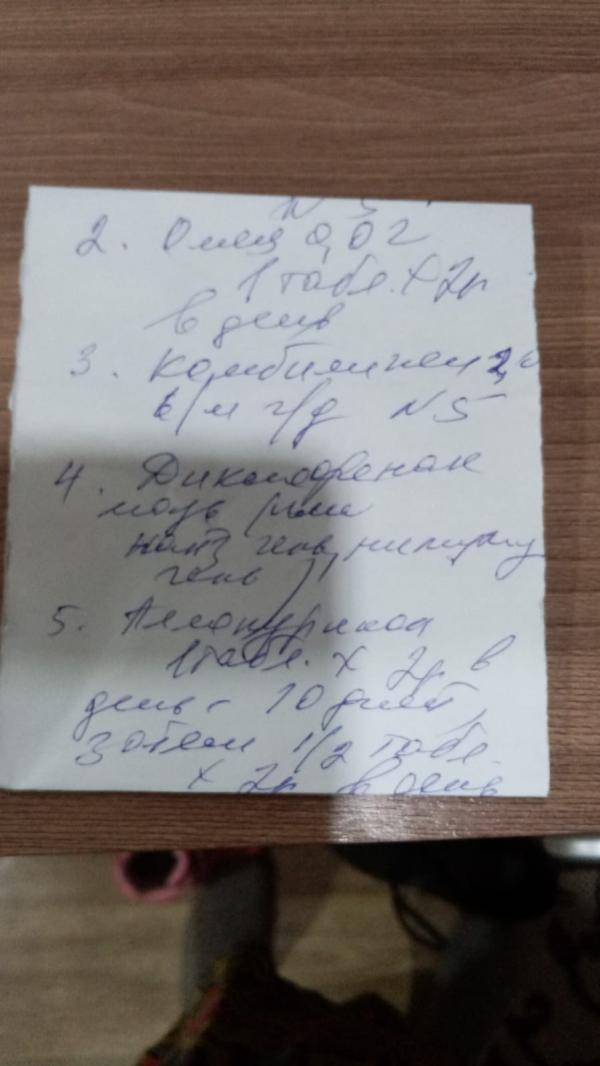 2. Омез 0,02
1 табл. х 2р
в день
3. Комбилипен 2,0
в/м ч/д N5
4. Диклофенак
мазь или
гель
5. Аллопуринол
1 табл. х 2р в
день - 10 дней,
затем 1/2 табл.
х 2р в день